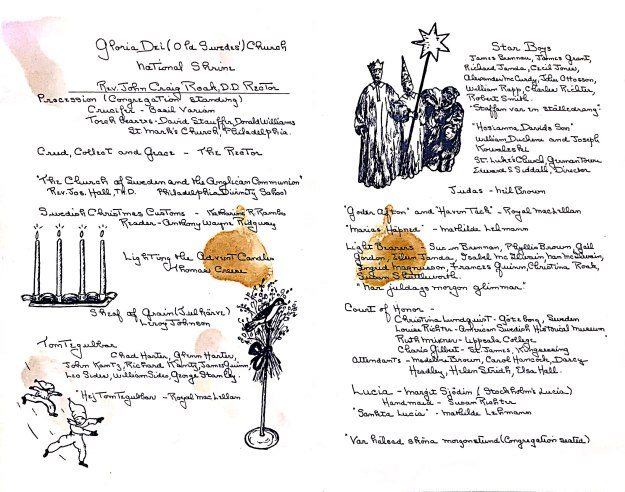 Gloria Dei (Old Swedes') Church
National Shrine
Rev. John Craig Roak, D.D. Rector
Procession (Congregation standing)
Crucifer - Basil Varian
Torch Bearers - David Stauffer, Donald Williams
St. Mark's Church, Philadelphia.
Creed, Collect and Grace - The Rector
"The Church of Sweden and the Anglican Communion"
Rev. Jos. Hall, TH.D. Philadelphia Divinity School
Swedish Christmas Customs - Katharine R. Rambo
Reader - Anthony Wayne Ridgway
Lighting the Advent Candles
Thomas
Sheaf of Grain (Julkärve)
Leroy Johnson
Tomtegubbar
Chad Harter, Glenn Harter,
John Kantz, Richard Kantz, James Quinn,
Leo Sides, William Sides, George Stanly
"Hej Tomtegubbar" - Royal MacLellan
Star Boys
James Brennan, James Grant,
Richard Janda, Cecil Jones,
Alexander McCurdy, John Ottosson,
William Rapp, Charles Richter,
Robert Smith.
"Staffan var en stalledrang"
"Hosianna, Davids Son"
William Duchene and Joseph
St. Luke's Church, Germantown
Edward S Siddall, Director
Judas - Wil Brown
"Goder Afton" and "Haven Tack" - Royal MacLellan
"Marias Häpned" - Mathilde Lehmann
Light Bearers - Susan Brennan, Phyllis Brown, Gail
Gordon, Eileen Janda, Isabel McIlvain, Nan McIlvain,
Ingrid Magnusson, Frances Quinn, Christina Roak,
Susan Shuttleworth.
"När juldags morgon glimmar"
Court of Honor -
Christina Lundquist - Göteborg, Sweden
Louise Richter - American Swedish Historical Museum
Ruth - Uppsala College
Charlo Gilbert - St. James, Kingsessing
Attendants - Madeline Brown, Carol Hancock, Darcy
Headley, Helen Streich, Elsa Hall.
Lucia - Margit Sjödin (Stockholm's Lucia)
Handmaid - Susan Richter
"Sankta Lucia" - Mathilde Lehmann
"Var hälsad sköna morgonstund (Congregation seated)